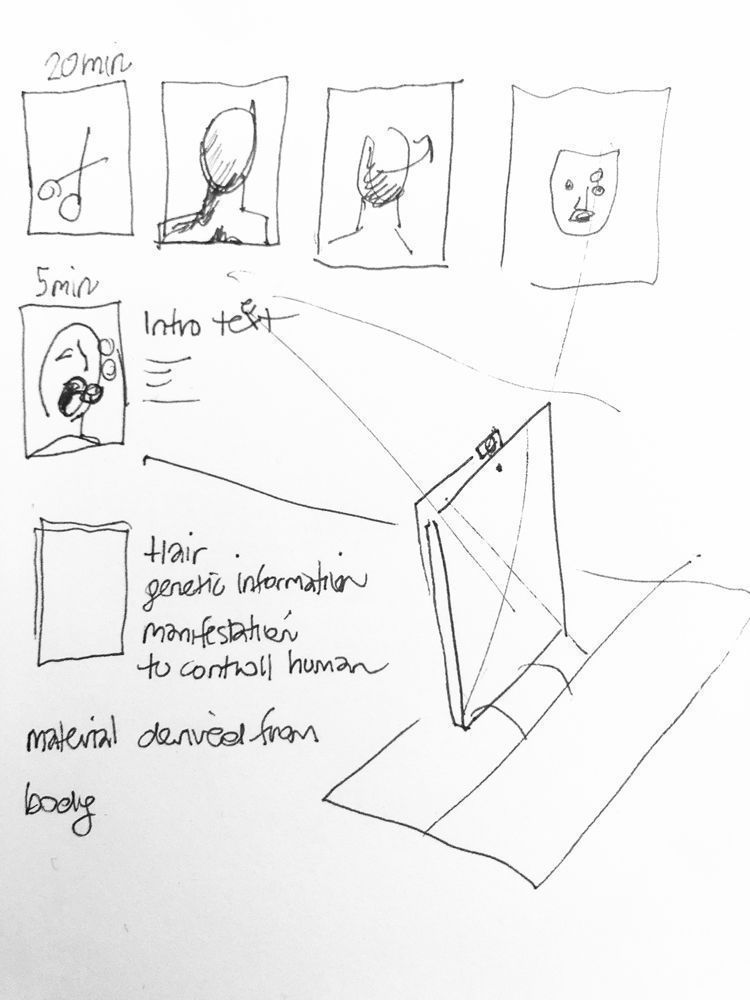 20min
5min
Intro text
Hair
genetic information
manifestation
to controll human
material derived from
body